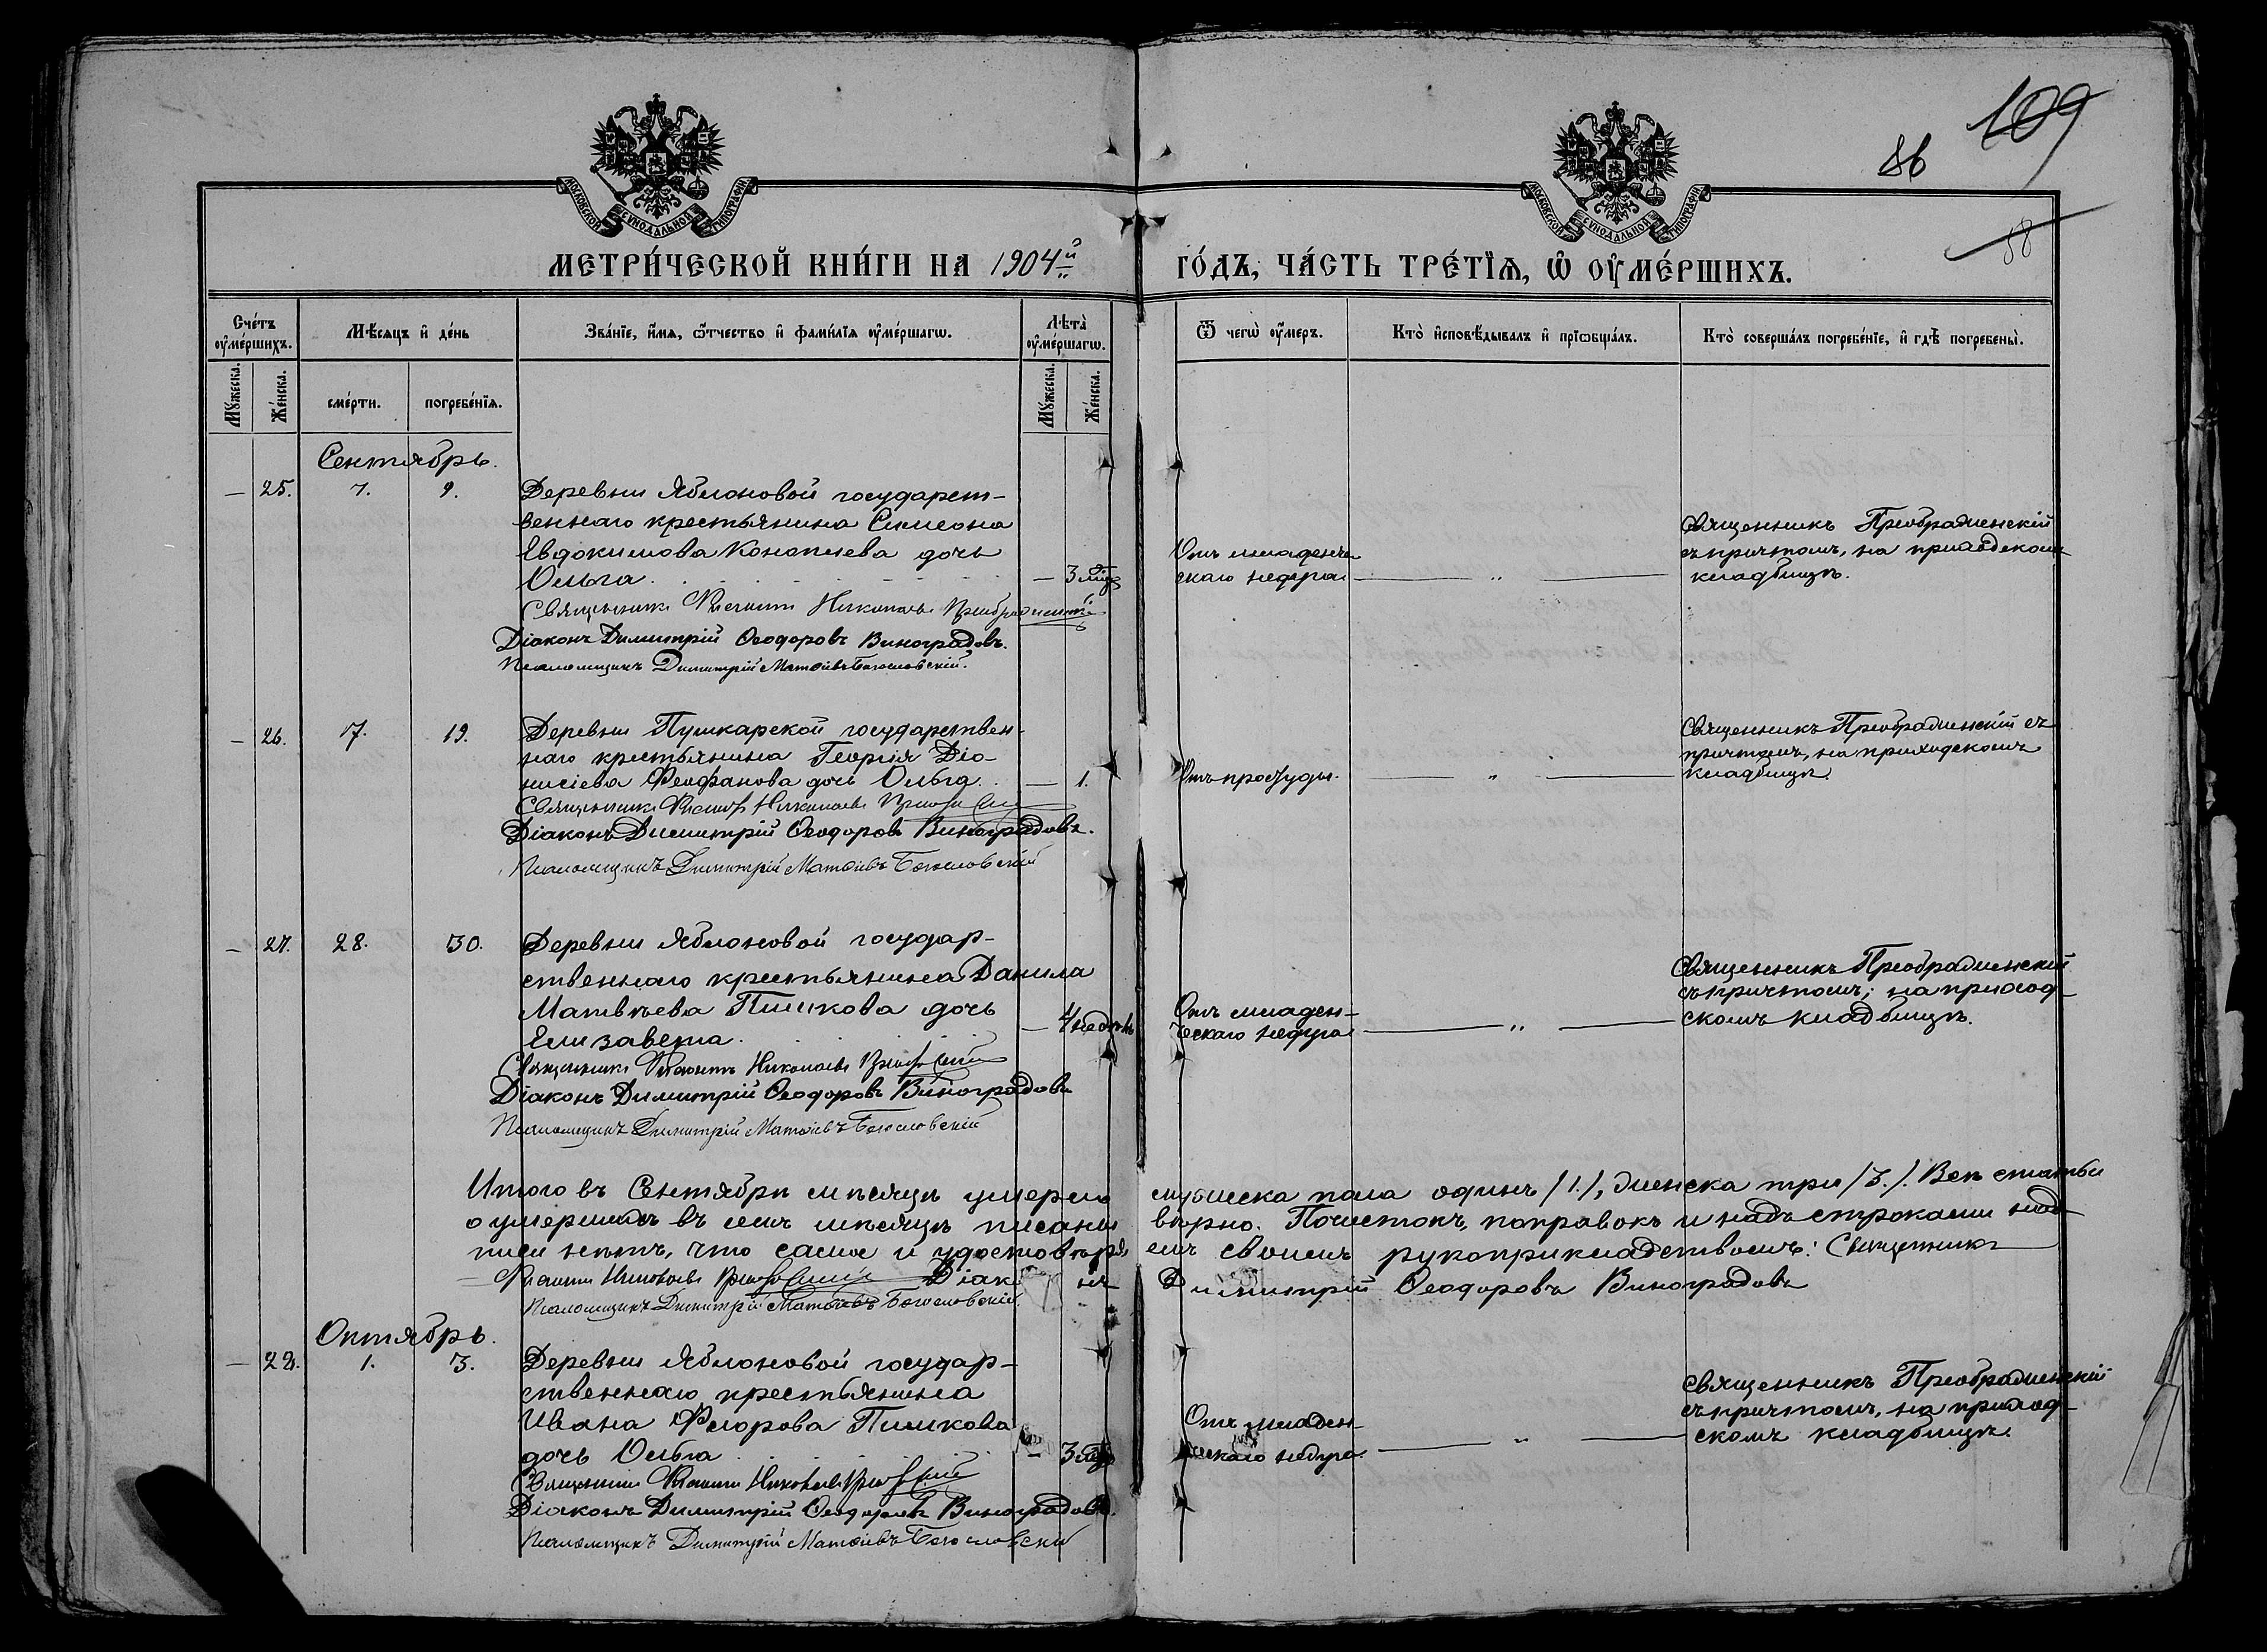 109
86
58
МОСКОВСКОЙ СѴНОДАЛЬНОЙ ТИПОГРАФІИ
МОСКОВСКОЙ СѴНОДАЛЬНОЙ ТИПОГРАФІИ
МЕТРИ́ЧЕСКОЙ КНИ́ГИ НА 1904й ГО́ДЪ, ЧА́СТЬ ТРЕ́ТІѦ, Ѡ ОУМЕ́РШИХЪ.
Сче́тъ оуме́ршихъ.
Мѣ́сяцъ и де́нь
Зва́нїе, и́мя, ѿчество и фами́лїя оуме́ршагѡ.
Лѣта̀ оуме́ршагѡ.
Ѿ чегѡ̀ оу́меръ.
Кто̀ исповѣ́дывалъ и прїѡбща́лъ.
Кто̀ соверша́лъ погребе́нїе, и гдѣ̀ погребены̀.
Му́жеска.
Же́нска.
сме́рти.
погребе́нїя.
Му́жеска.
Же́нска.
Сентябрь.
— 25. 7. 9. Деревни Яблоновой государст-
веннаго крестьянина Симеона
Евдокимова Конопнева дочь
Ольга. — 3 мѣс
Священникъ Николаевъ Преображенскій
Діаконъ Димитрій Ѳеодоровъ Виноградовъ.
Псаломщикъ Димитрій Матѳіевъ Богословскій.
Отъ младенче
скаго недуга — „ —
Священникъ Преображенскій
съ причтомъ, на приходскомъ
кладбищѣ.
— 26. 17. 19. Деревни Пушкарской государствен-
наго крестьянина Георгія Діо-
нисіева Феофанова дочь Ольга. — 1.
Священникъ Николаевъ
Діаконъ Димитрій Ѳеодоровъ Виноградовъ.
Псаломщикъ Димитрій Матѳіевъ Богословскій
Отъ простуды. — „ —
Священникъ Преображенскій съ
причтомъ, на приходскомъ
кладбищѣ.
— 27. 28. 30. Деревни Яблоновой государ-
ственнаго крестьянина Данила
Матвѣева Пишкова дочь
Елизавета. — 4 недѣль
Священникъ Николаевъ
Діаконъ Димитрій Ѳеодоровъ Виноградовъ
Псаломщикъ Димитрій Матѳіевъ Богословскій
Отъ младен-
ческаго недуга — „ —
Священникъ Преображенскій
съ причтомъ, на приход-
скомъ кладбищѣ.
Итого въ Сентябрѣ мѣсяцѣ умерло мужеска пола одинъ /1./, женска три /3./. Всѣ статьи
о умершихъ въ семъ мѣсяцѣ писаны вѣрно. Почистокъ, поправокъ и надъ строками над-
писи нѣтъ, что самое и удостовѣряемъ своимъ рукоприкладствомъ: Священникъ
Николаевъ Діаконъ Димитрій Ѳеодоровъ Виноградовъ
Псаломщикъ Димитрій Матѳіевъ Богословскій.
Октябрь.
— 28. 1. 3. Деревни Яблоновой государ-
ственнаго крестьянина
Ивана Флорова Пишкова
дочь Ольга — 3 мѣс
Священникъ Николаевъ
Діаконъ Димитрій Ѳеодоровъ Виноградовъ.
Псаломщикъ Димитрій Матѳіевъ Богословскій
Отъ младен-
ческаго недуга. — „ —
Священникъ Преображенскій
съ причтомъ, на приход-
скомъ кладбищѣ.